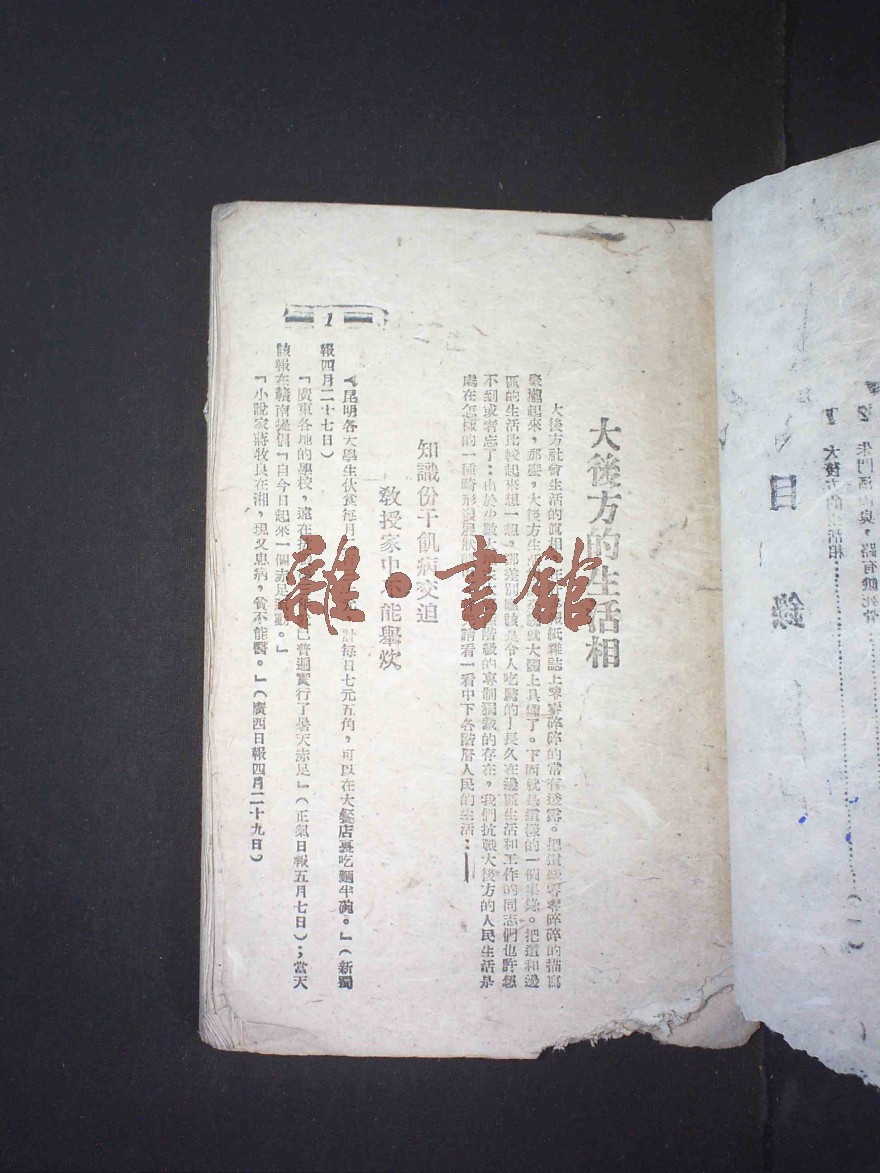 目錄
1 大後方的生活相
2 朱門酒肉臭，路有餓死骨
（一）
大後方的生活相
大後方社會生活的眞相，報紙雜誌上零零碎碎的常有透露。把這些零零碎碎的描寫
聚攏起來，那麽，大後方生活就大體上具備了。下面就是這樣的一個集錄。把這和邊
區的生活比較起來想一想，那差別應該是令人吃驚的！長久在邊區生活和工作的同志們也許想
不到或者忘了：由於少數大階級的專制獨裁的存在，我們抗戰大後方的人民生活是
處在怎樣的一種畸形請看一看中下各階層人民的生活：——
知識份子飢病交迫
敎授家中不能舉炊
「昆明各大學生伙食每月計每日七元五角，可以在大餐店裏吃麵半碗。」（新蜀
報四月二十七日）
「廣東各地的學校，遠在已普遍實行了暑天赤足」（正氣日報五月七日）；當天
該報在贛南提倡「自今日起來一個赤足運動。」
「小說家蔣牧良在湘，現又患病，貧不能醫。」（廣西日報四月二十九日）
1
雜·書館